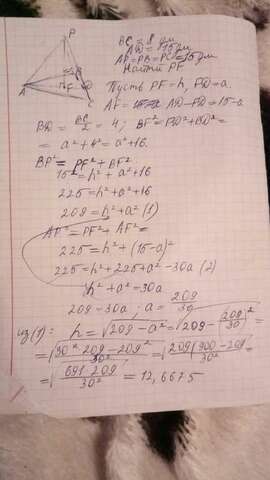 P
BC = 8 дм
AD = 15 дм
AP=PB=PC=15 дм
Найти PF
A
F
D
C
Пусть PF=h, FD=a.
AF = AD-FD=15-a
BD = BC/2 = 4; BF²= FD²+BD²=
= a²+4²= a²+16.
BP²= PF²+BF²
15²=h²+a²+16
225=h²+a²+16
209=h²+a² (1)
AP²=PF²+AF²=
225=h²+(15-a)²
225=h²+225+a²-30a (2)
h²+a²-30a
209-30a; a= 209/30
из(1): h=√209-a² =√209-(209/30)² =
=√30²·209-209²/30² =√209(900-209)/30² =
=√691·209/30² = 12,6675